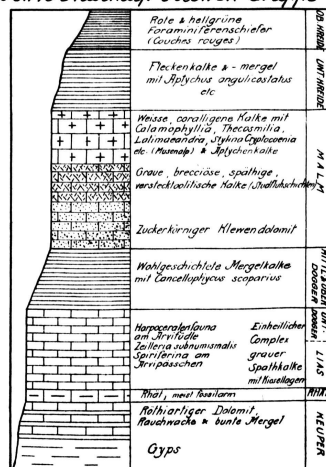 Rote & hellgrüne
Foraminiferenschiefer
(Couches rouges)
OB. KREIDE
Fleckenkalke & - mergel
mit Aptychus angulicostatus
etc
UNT. KREIDE
Weisse, coralligene Kalke mit
Calamophyllia, Thecosmilia,
Latimaeandra, Stylina Cryptocoenia
etc. (Musenalp) & Aptychenkalke
Graue, brecciöse, späthige,
versteckoolitische Kalke
Zuckerkörniger Klewendolomit
MALM
Wohlgeschichtete Mergelkalke
mit Cancellophycus scoparius
DOGGER
Harpoceratenfauna
am Arvitüdle
Zeilleria subnumismalis
Spiriferina am
Arvipässchen
Einheitlicher
Complex
grauer
Spathkalke
mit Kiesellagen
DOGGER
LIAS
Rhät, meist fossilarm
RHÄT
Röthiartiger Dolomit,
Rauchwacke & bunte Mergel
Gyps
KEUPER